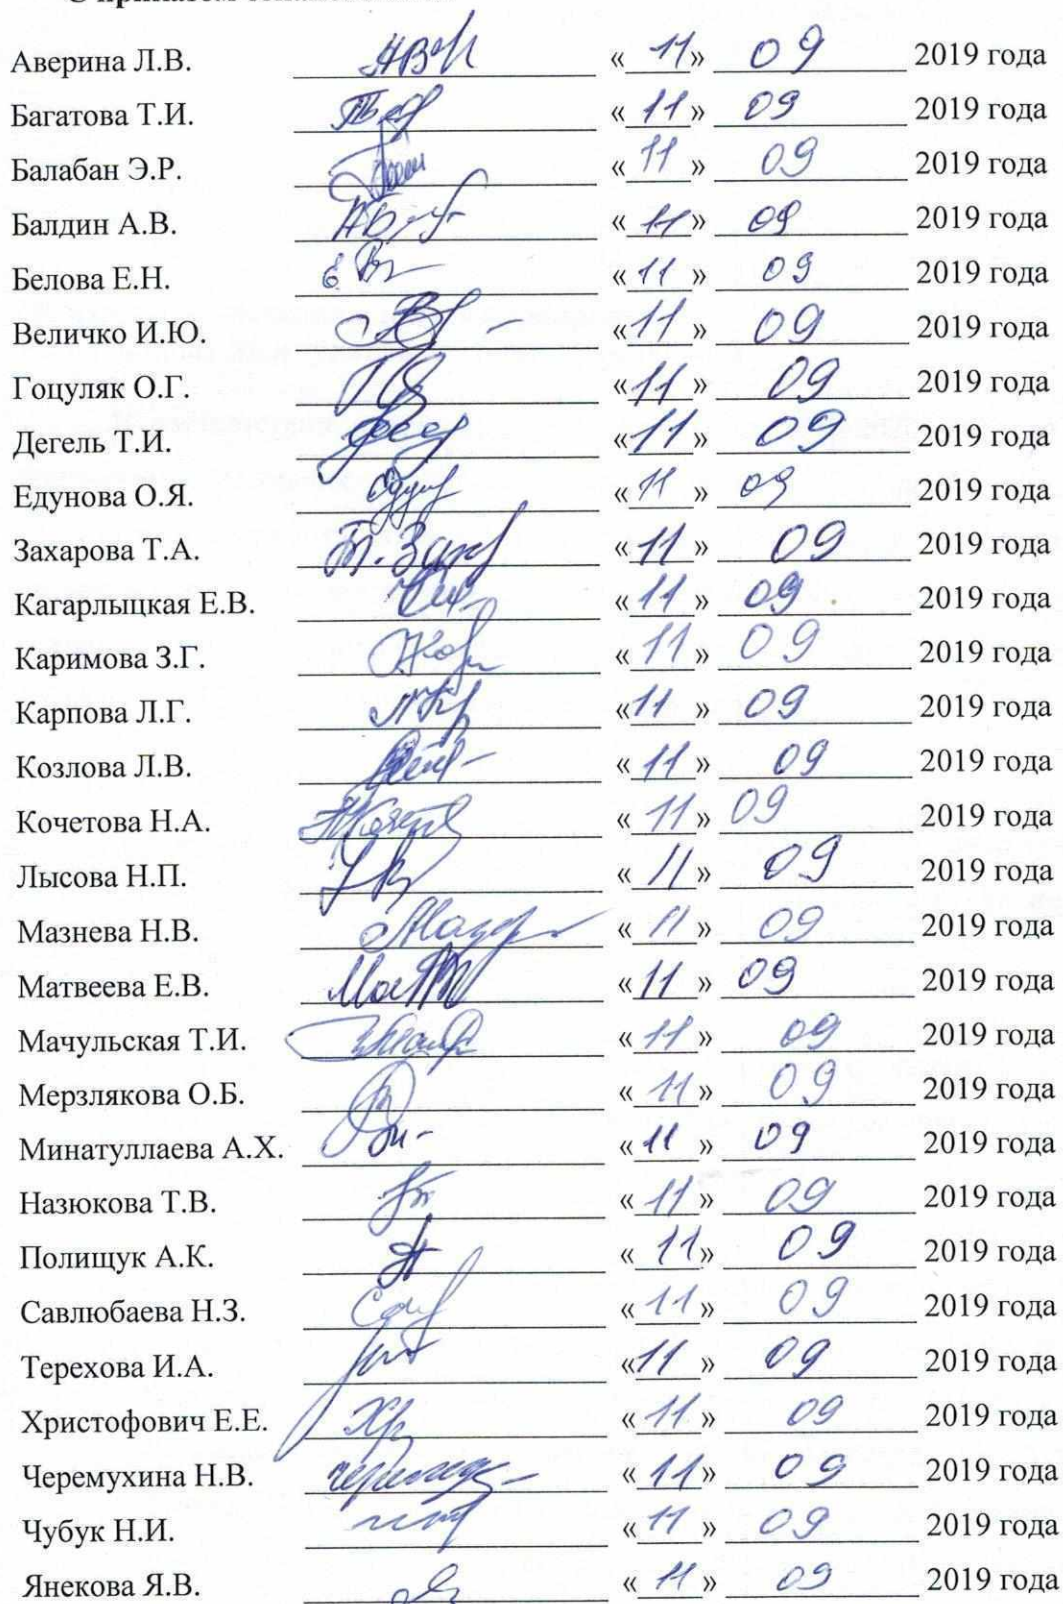 Аверина Л.В. «11» 09 2019 года
Багатова Т.И. «11» 09 2019 года
Балабан Э.Р. «11» 09 2019 года
Балдин А.В. «11» 09 2019 года
Белова Е.Н. «11» 09 2019 года
Величко И.Ю. «11» 09 2019 года
Гоцуляк О.Г. «11» 09 2019 года
Дегель Т.И. «11» 09 2019 года
Едунова О.Я. «11» 09 2019 года
Захарова Т.А. «11» 09 2019 года
Кагарлыцкая Е.В. «11» 09 2019 года
Каримова З.Г. «11» 09 2019 года
Карпова Л.Г. «11» 09 2019 года
Козлова Л.В. «11» 09 2019 года
Кочетова Н.А. «11» 09 2019 года
Лысова Н.П. «11» 09 2019 года
Мазнева Н.В. «11» 09 2019 года
Матвеева Е.В. «11» 09 2019 года
Мачульская Т.И. «11» 09 2019 года
Мерзлякова О.Б. «11» 09 2019 года
Минатуллаева А.Х. «11» 09 2019 года
Назюкова Т.В. «11» 09 2019 года
Полищук А.К. «11» 09 2019 года
Савлюбаева Н.З. «11» 09 2019 года
Терехова И.А. «11» 09 2019 года
Христофович Е.Е. «11» 09 2019 года
Черемухина Н.В. «11» 09 2019 года
Чубук Н.И. «11» 09 2019 года
Янекова Я.В. «11» 09 2019 года